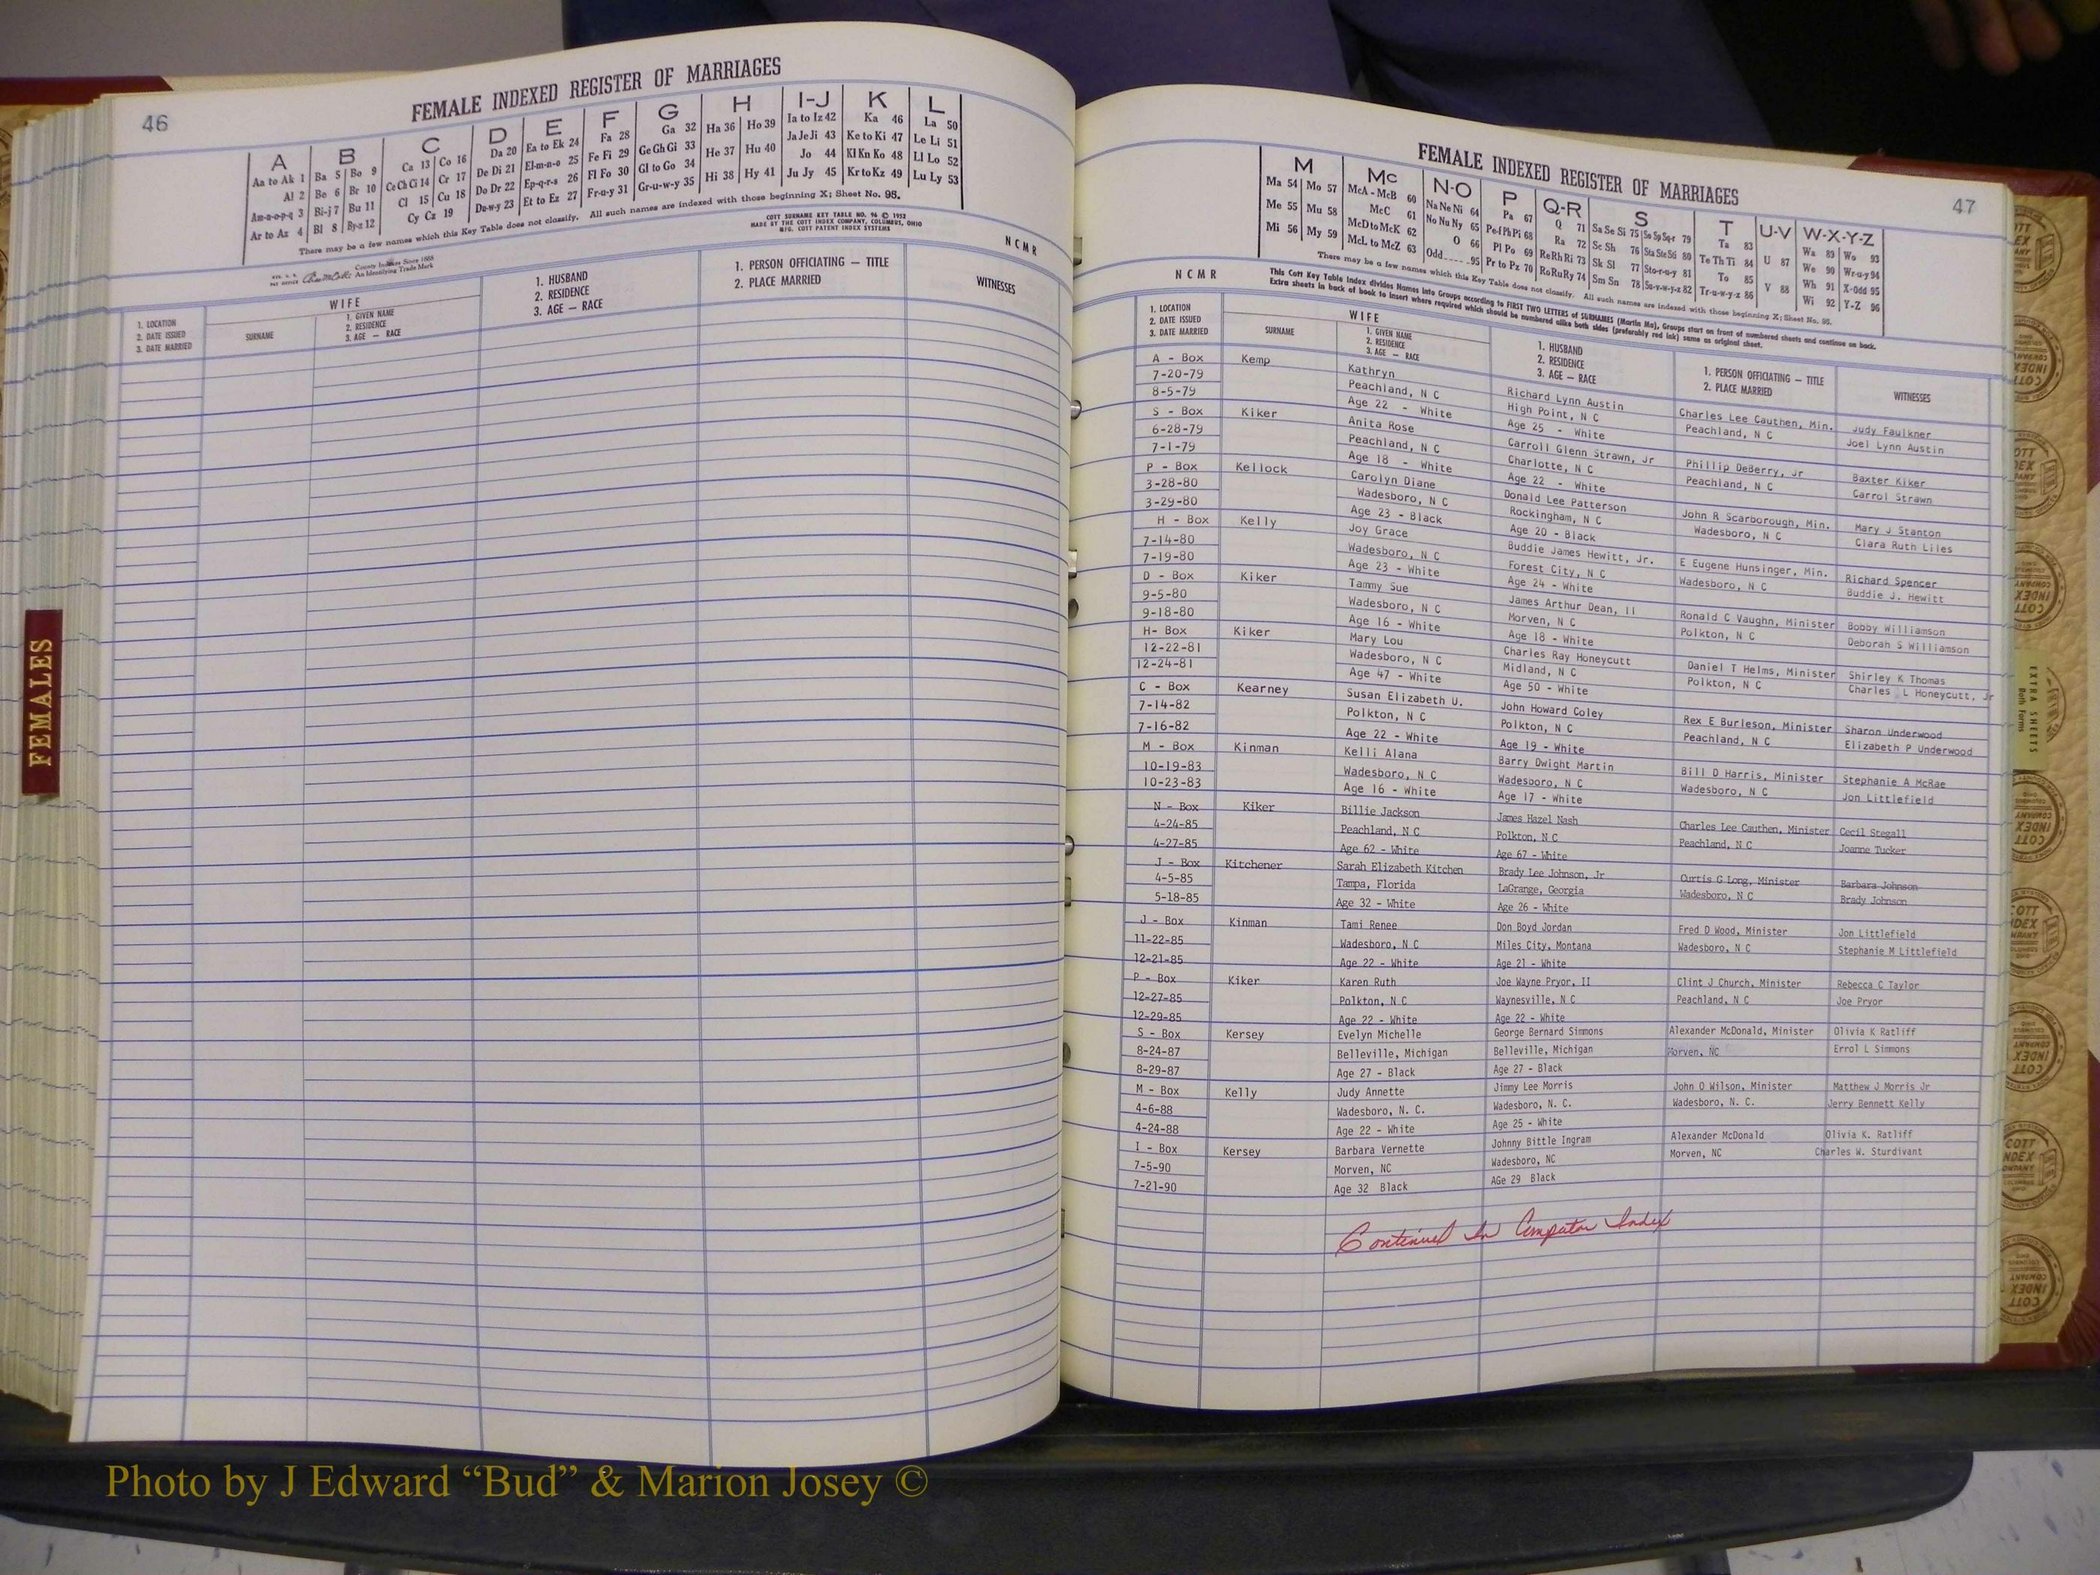 46
FEMALE INDEXED REGISTER OF MARRIAGES
A
Aa to Ak 1
Al 2
Am-n-o-p-q 3
Ar to Az 4
B
Ba 5 Bo 9
Be 6 Br 10
Bi-j 7 Bu 11
Bl 8 By-z 12
C
Ca 13 Co 16
Ce Ch Ci 14 Cr 17
Cl 15 Cu 18
Cy Cz 19
D
Da 20
De Di 21
Do Dr 22
Du-w-y 23
E
Ea to Ek 24
El-m-n-o 25
Ep-q-r-s 26
Et to Ez 27
F
Fa 28
Fe Fi 29
Fl Fo 30
Fr-u-y 31
G
Ga 32
Ge Gh Gi 33
Gl to Go 34
Gr-u-w-y 35
H
Ha 36 Ho 39
He 37 Hu 40
Hi 38 Hy 41
I-J
Ia to Iz 42
Ja Je Ji 43
Jo 44
Ju Jy 45
K
Ka 46
Ke to Ki 47
Kl Kn Ko 48
Kr to Kz 49
L
La 50
Le Li 51
Ll Lo 52
Lu Ly 53
There may be a few names which this Key Table does not classify. All such names are indexed with those beginning X; Sheet No. 95.
COTT SURNAME KEY TABLE NO. 96 © 1952
MADE BY THE COTT INDEX COMPANY, COLUMBUS, OHIO
MFG. COTT PATENT INDEX SYSTEMS
County Indexes Since 1888
An Identifying Trade Mark
N C M R
1. LOCATION
2. DATE ISSUED
3. DATE MARRIED
WIFE
SURNAME
1. GIVEN NAME
2. RESIDENCE
3. AGE — RACE
1. HUSBAND
2. RESIDENCE
3. AGE — RACE
1. PERSON OFFICIATING — TITLE
2. PLACE MARRIED
WITNESSES
FEMALES
FEMALE INDEXED REGISTER OF MARRIAGES
47
M
Ma 54 Mo 57
Me 55 Mu 58
Mi 56 My 59
Mc
McA - McB 60
McC 61
McD to McK 62
McL to McZ 63
N-O
Na Ne Ni 64
No Nu Ny 65
O 66
Odd 95
P
Pa 67
Pe-f Ph Pi 68
Pl Po 69
Pr to Pz 70
Q-R
Q 71
Ra 72
Re Rh Ri 73
Ro Ru Ry 74
S
Sa Se Si 75 So Sp Sq-r 79
Sc Sh 76 Sta Ste Sti 80
Sk Sl 77 Sto-r-u-y 81
Sm Sn 78 Su-v-w-y-z 82
T
Ta 83
Te Th Ti 84
To 85
Tr-u-w-y-z 86
U-V
U 87
V 88
W-X-Y-Z
Wa 89 Wo 93
We 90 Wr-u-y 94
Wh 91 X-Odd 95
Wi 92 Y-Z 96
There may be a few names which this Key Table does not classify. All such names are indexed with those beginning X; Sheet No. 95.
N C M R
This Cott Key Table Index divides Names into Groups according to FIRST TWO LETTERS of SURNAMES (Martin Ma), Groups start on front of numbered sheets and continue on back.
Extra sheets in back of book to insert where required which should be numbered alike both sides (preferably red ink) same as original sheet.
1. LOCATION
2. DATE ISSUED
3. DATE MARRIED
WIFE
SURNAME
1. GIVEN NAME
2. RESIDENCE
3. AGE — RACE
1. HUSBAND
2. RESIDENCE
3. AGE — RACE
1. PERSON OFFICIATING — TITLE
2. PLACE MARRIED
WITNESSES
A - Box Kemp Kathryn Richard Lynn Austin Charles Lee Cauthen, Min. Judy Faulkner
7-20-79 Peachland, N C High Point, N C Peachland, N C Joel Lynn Austin
8-5-79 Age 22 - White Age 25 - White
S - Box Kiker Anita Rose Carroll Glenn Strawn, Jr Phillip DeBerry, Jr Baxter Kiker
6-28-79 Peachland, N C Charlotte, N C Peachland, N C Carrol Strawn
7-1-79 Age 18 - White Age 22 - White
P - Box Kellock Carolyn Diane Donald Lee Patterson John R Scarborough, Min. Mary J Stanton
3-28-80 Wadesboro, N C Rockingham, N C Wadesboro, N C Clara Ruth Liles
3-29-80 Age 23 - Black Age 20 - Black
H - Box Kelly Joy Grace Buddie James Hewitt, Jr. E Eugene Hunsinger, Min. Richard Spencer
7-14-80 Wadesboro, N C Forest City, N C Wadesboro, N C Buddie J. Hewitt
7-19-80 Age 23 - White Age 24 - White
D - Box Kiker Tammy Sue James Arthur Dean, II Ronald C Vaughn, Minister Bobby Williamson
9-5-80 Wadesboro, N C Morven, N C Polkton, N C Deborah S Williamson
9-18-80 Age 16 - White Age 18 - White
H- Box Kiker Mary Lou Charles Ray Honeycutt Daniel T Helms, Minister Shirley K Thomas
12-22-81 Wadesboro, N C Midland, N C Polkton, N C Charles L Honeycutt, Jr
12-24-81 Age 47 - White Age 50 - White
C - Box Kearney Susan Elizabeth U. John Howard Coley Rex E Burleson, Minister Sharon Underwood
7-14-82 Polkton, N C Polkton, N C Peachland, N C Elizabeth P Underwood
7-16-82 Age 22 - White Age 19 - White
M - Box Kinman Kelli Alana Barry Dwight Martin Bill D Harris, Minister Stephanie A McRae
10-19-83 Wadesboro, N C Wadesboro, N C Wadesboro, N C Jon Littlefield
10-23-83 Age 16 - White Age 17 - White
N - Box Kiker Billie Jackson James Hazel Nash Charles Lee Cauthen, Minister Cecil Stegall
4-24-85 Peachland, N C Polkton, N C Peachland, N C Joanne Tucker
4-27-85 Age 62 - White Age 67 - White
J - Box Kitchener Sarah Elizabeth Kitchen Brady Lee Johnson, Jr Curtis G Long, Minister Barbara Johnson
4-5-85 Tampa, Florida LaGrange, Georgia Wadesboro, N C Brady Johnson
5-18-85 Age 32 - White Age 26 - White
J - Box Kinman Tami Renee Don Boyd Jordan Fred D Wood, Minister Jon Littlefield
11-22-85 Wadesboro, N C Miles City, Montana Wadesboro, N C Stephanie M Littlefield
12-21-85 Age 22 - White Age 21 - White
P - Box Kiker Karen Ruth Joe Wayne Pryor, II Clint J Church, Minister Rebecca C Taylor
12-27-85 Polkton, N C Waynesville, N C Peachland, N C Joe Pryor
12-29-85 Age 22 - White Age 22 - White
S - Box Kersey Evelyn Michelle George Bernard Simmons Alexander McDonald, Minister Olivia K Ratliff
8-24-87 Belleville, Michigan Belleville, Michigan Morven, NC Errol L Simmons
8-29-87 Age 27 - Black Age 27 - Black
M - Box Kelly Judy Annette Jimmy Lee Morris John O Wilson, Minister Matthew J Morris Jr
4-6-88 Wadesboro, N. C. Wadesboro, N. C. Wadesboro, N. C. Jerry Bennett Kelly
4-24-88 Age 22 - White Age 25 - White
I - Box Kersey Barbara Vernette Johnny Bittle Ingram Alexander McDonald Olivia K. Ratliff
7-5-90 Morven, NC Wadesboro, NC Morven, NC Charles W. Sturdivant
7-21-90 Age 32 Black AGe 29 Black
Continued In Computer Index
EXTRA SHEETS
Both Forms
Photo by J Edward “Bud” & Marion Josey ©